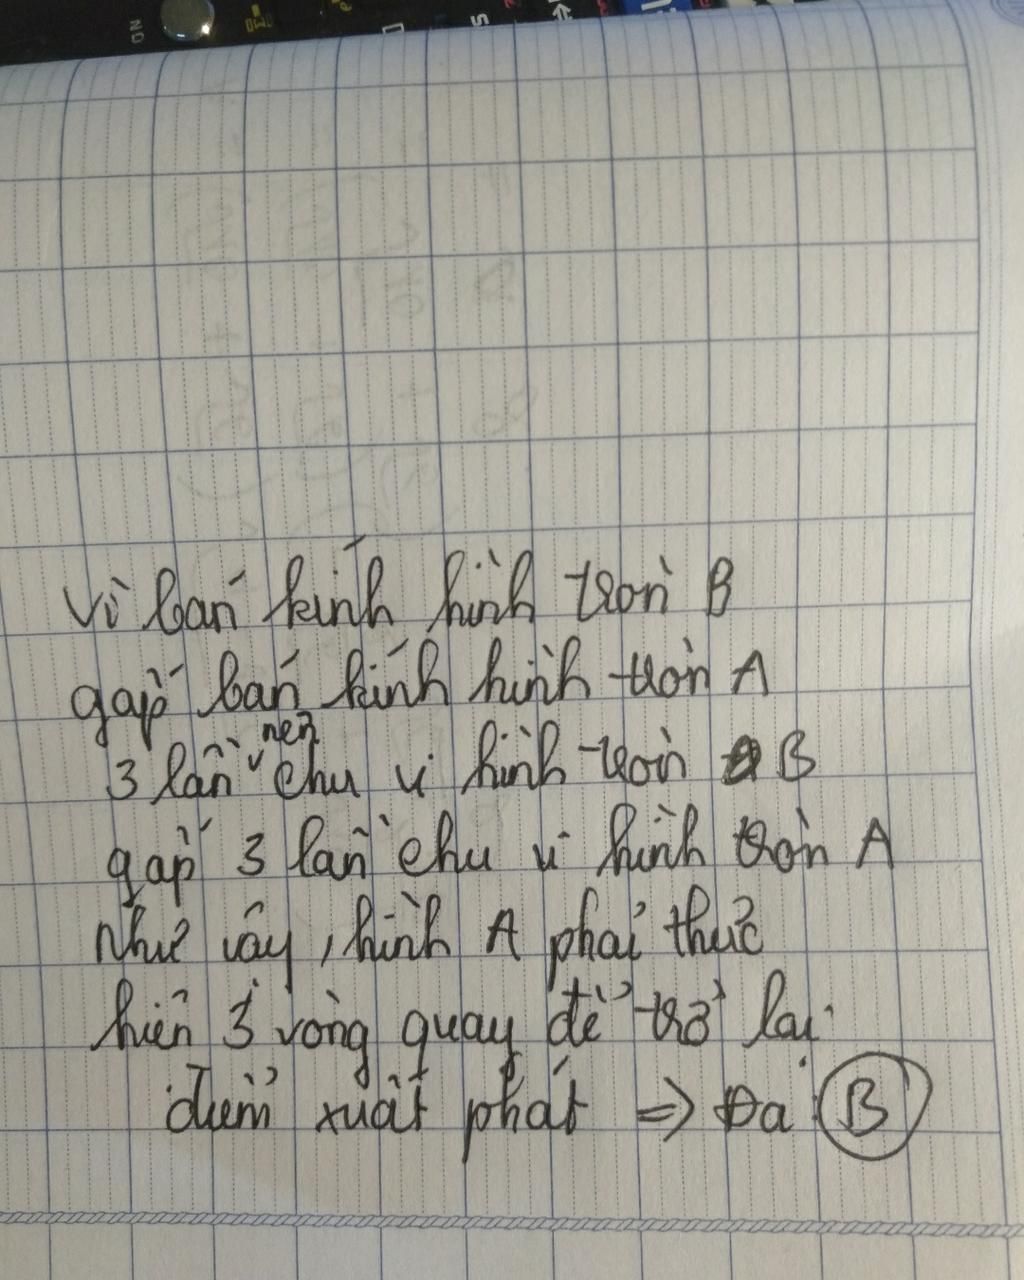 Vì bán kính hình tròn B
gấp bán kính hình tròn A
3 lần nên chu vi hình tròn B
gấp 3 lần chu vi hình tròn A
Như vậy, hình A phải thực
hiện 3 vòng quay để trở lại
điểm xuất phát => Đa B